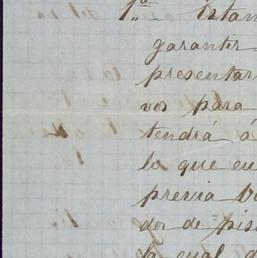 1ª istan
garantir
presentar
vos para
tendrá á
lo que eu
previa
dor de pis
la cual